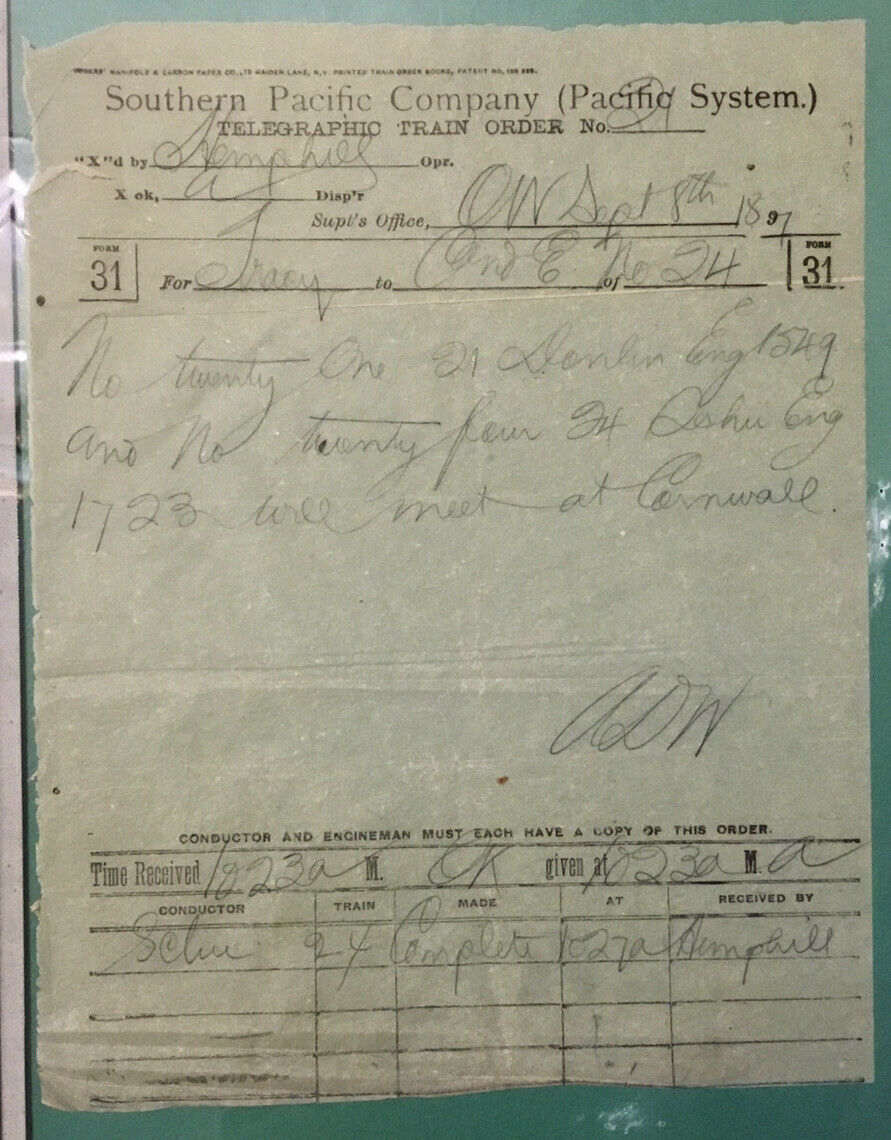 MANIFOLD & CARBON PAPER CO., 75 MAIDEN LANE, N.Y. PRINTED TRAIN ORDER BOOKS, PATENT NO.
Southern Pacific Company (Pacific System.)
TELEGRAPHIC TRAIN ORDER No. 21
"X"d by Hemphill Opr.
X ok, a Disp'r
Supt's Office, OW Sept 8th 1897
FORM 31 For Tracy to C and E of No 24 FORM 31
No twenty One 21 Donlin Eng 1549
and No twenty four 24 Eng
1723 will meet at Cornwall.
ADW
CONDUCTOR AND ENGINEMAN MUST EACH HAVE A COPY OF THIS ORDER.
Time Received 1023a M. OK given at 1023a M. a
CONDUCTOR TRAIN MADE AT RECEIVED BY
24 Complete 1027a Hemphill